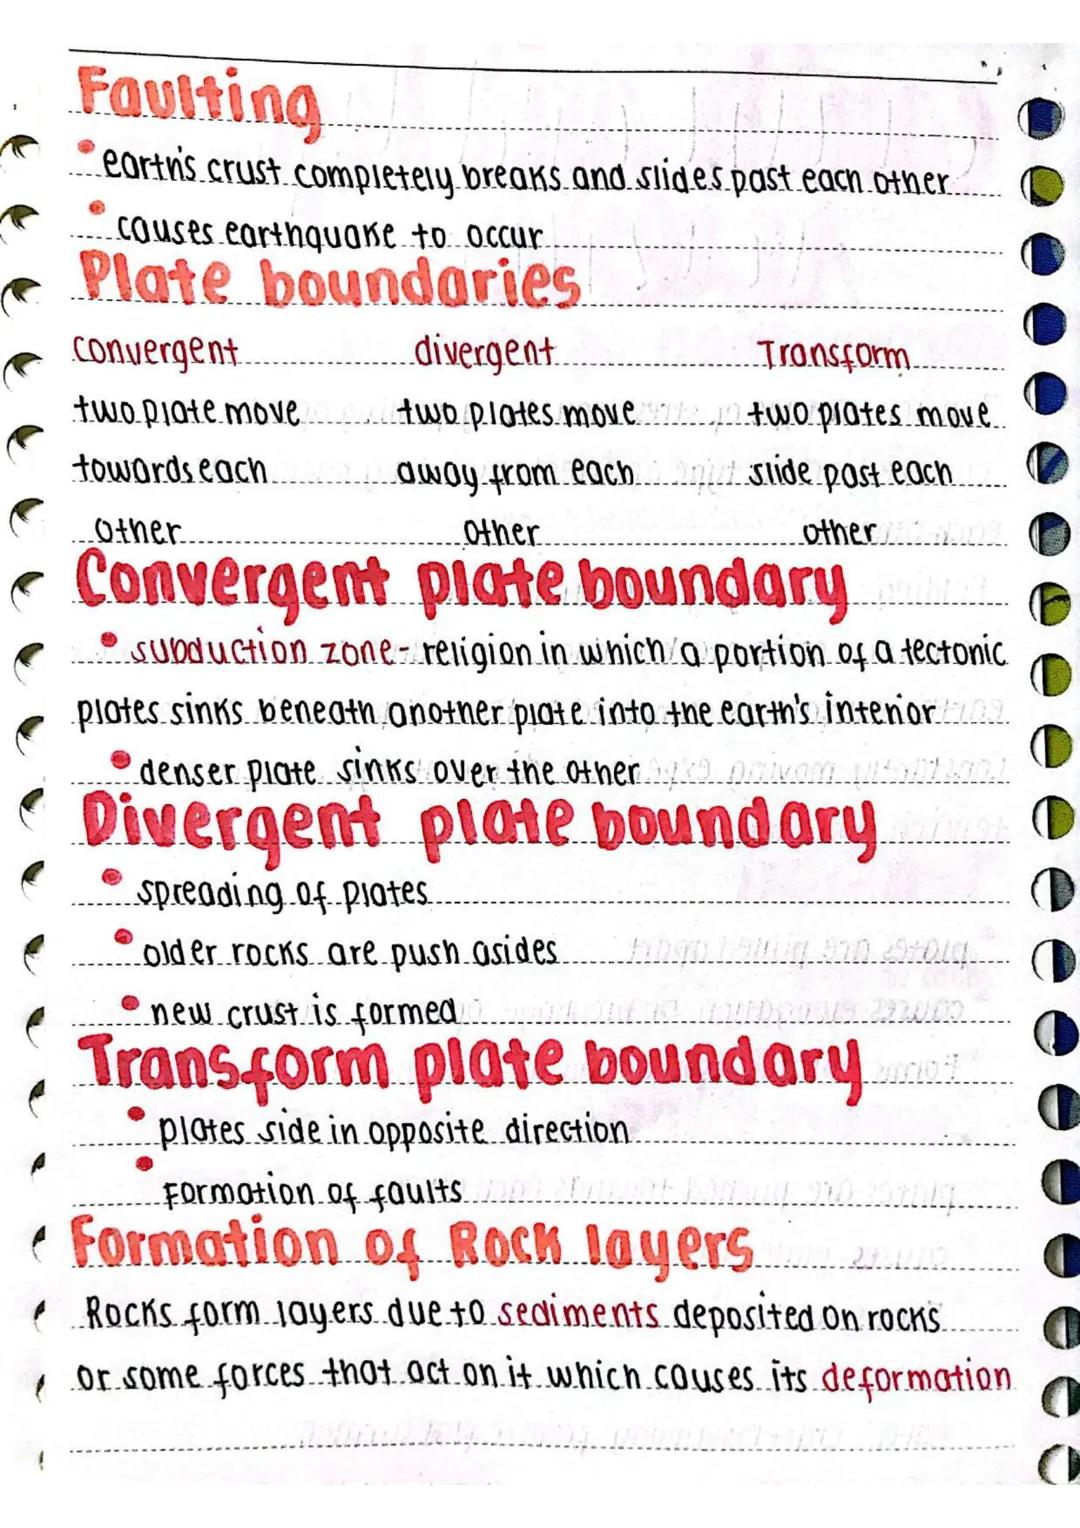 Faulting
• earth's crust completely breaks and slides past each other
• causes earthquake to occur
Plate boundaries
convergent divergent Transform
two plate move two plates move two plates move
towards each away from each slide past each
other other other
Convergent plate boundary
• subduction zone- religion in which a portion of a tectonic
plates sinks beneath another plate into the earth's interior
• denser plate sinks over the other
Divergent plate boundary
• spreading of plates
• older rocks are push asides
• new crust is formed
Transform plate boundary
• plates side in opposite direction
• Formation of faults
Formation of Rock layers
Rocks form layers due to sediments deposited on rocks
or some forces that act on it which causes its deformation